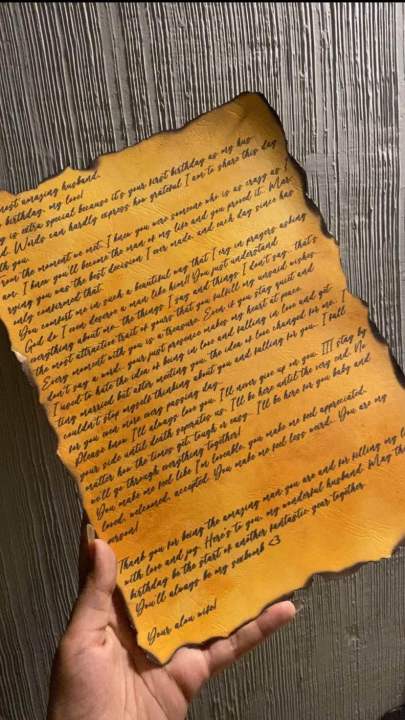 most amazing husband.
birthday, my love!
is extra special because it's your first birthday as my hus
d. Words can hardly express how grateful I am to share this day
th you.
rom the moment we met, I knew you were someone who is as crazy as I
am. I knew you'll become the man of my life and you proved it. Mar
rying you was the best decision I ever made, and each day since has
only confirmed that.
You connect me in such a beautiful way that I cry in prayers asking
God do I even deserve a man like him! You just understand
everything about me, the things I say and things I don't say- that's
the most attractive trait of yours that you fulfill my unsaid wishes.
Every moment with you is a treasure. Even if you stay quiet and
don't say a word, your just presence makes my heart at peace.
I used to hate the idea of being in love and falling in love and get
ting married but after meeting you, the idea of love changed for me. I
couldn't stop myself thinking about you and falling for you. I fall
for you even more every passing day.
Please know, I'll always love you. I'll never give up on you. III stay by
your side until death seperates us. I'll be here until the very end. No
matter how the times get tough or easy - I'll be here for you baby and
we'll go through everything together!
You make me feel like I'm lovable, you make me feel appreciated,
loved, welcomed, accepted. You make me feel less weird... You are my
person!
Thank you for being the amazing man you are and for filling my li
with love and joy. Here's to you, my wonderful husband. May this
birthday be the start of another fantastic year together.
You'll always be my <3
Your wife!